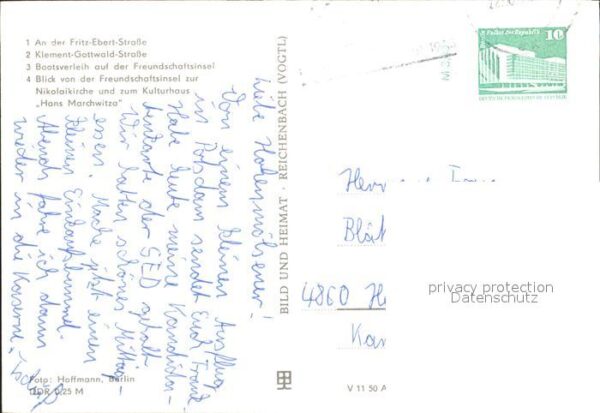 1 An der Fritz-Ebert-Straße
2 Klement-Gottwald-Straße
3 Bootsverleih auf der Freundschaftsinsel
4 Blick von der Freundschaftsinsel zur
Nikolaikirche und zum Kulturhaus
„Hans Marchwitza"
Liebe Hohenmölsener!
Von einem kleinen Ausflug
in Potsdam sendet Euch Frank
Habe heute meine Kandidaten-
karte der SED geholt
Wir hatten schönes Mittag-
essen. Mache jetzt einen
kleinen Einkaufsbummel.
Abends fahre ich dann
wieder in die Kaserne.
Foto: Hoffmann, Berlin
DDR 0,25 M
BILD UND HEIMAT · REICHENBACH (VOGTL)
V 11 50 A
10
Palast der Republik
Herr
4860 H
privacy protection
Datenschutz